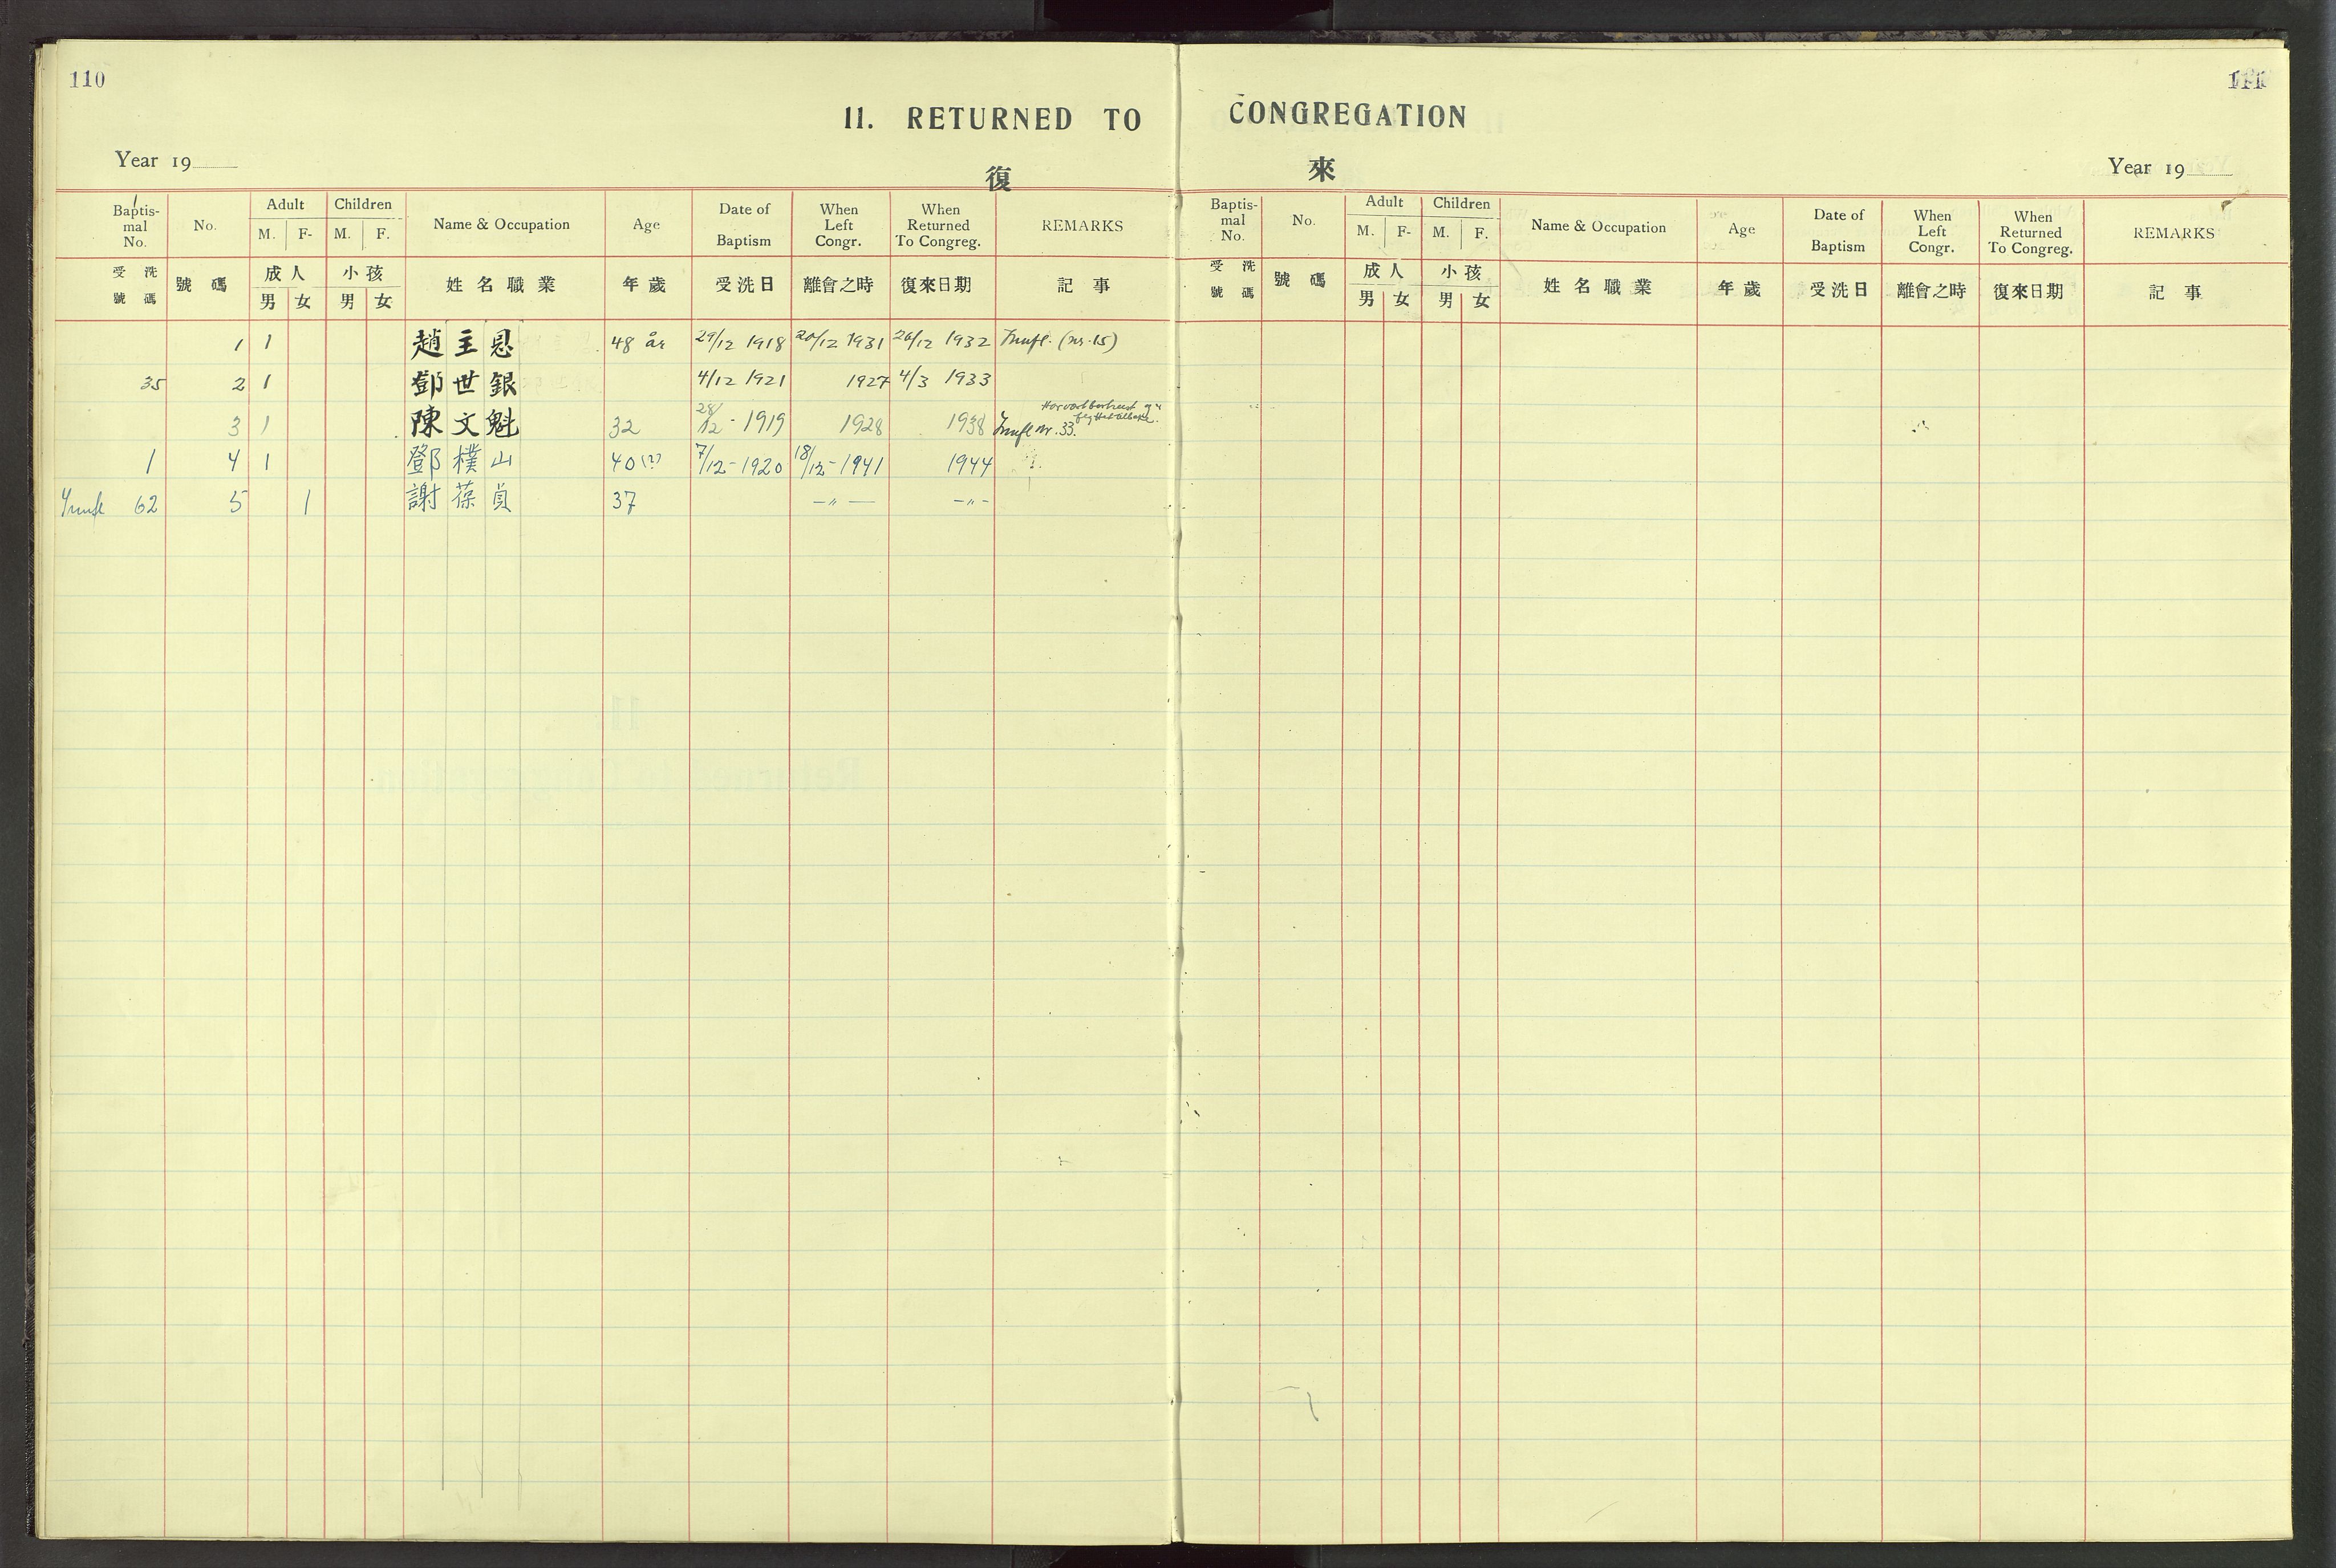 110
111
11. RETURNED TO CONGREGATION
Year 19
復 來
Year 19
Baptis-mal No. No. Adult M. F- Children M. F. Name & Occupation Age Date of Baptism When Left Congr. When Returned To Congreg. REMARKS
受洗號碼 號碼 成人 男 女 小孩 男 女 姓名職業 年歲 受洗日 離會之時 復來日期 記事
1 1 趙主恩 48 år 29/12 1918 20/12 1931 26/12 1932 Innfl. (nr. 15)
35 2 1 鄧世銀 4/12 1921 1927 4/3 1933
3 1 陳文魁 32 28/12 - 1919 1928 1938 Innfl nr. 33.
1 4 1 鄧樸山 40(?) 7/12 - 1920 18/12 - 1941 1944
62 5 1 謝葆貞 37 —〃— -〃-
Baptis-mal No. No. Adult M. F- Children M. F. Name & Occupation Age Date of Baptism When Left Congr. When Returned To Congreg. REMARKS
受洗號碼 號碼 成人 男 女 小孩 男 女 姓名職業 年歲 受洗日 離會之時 復來日期 記事